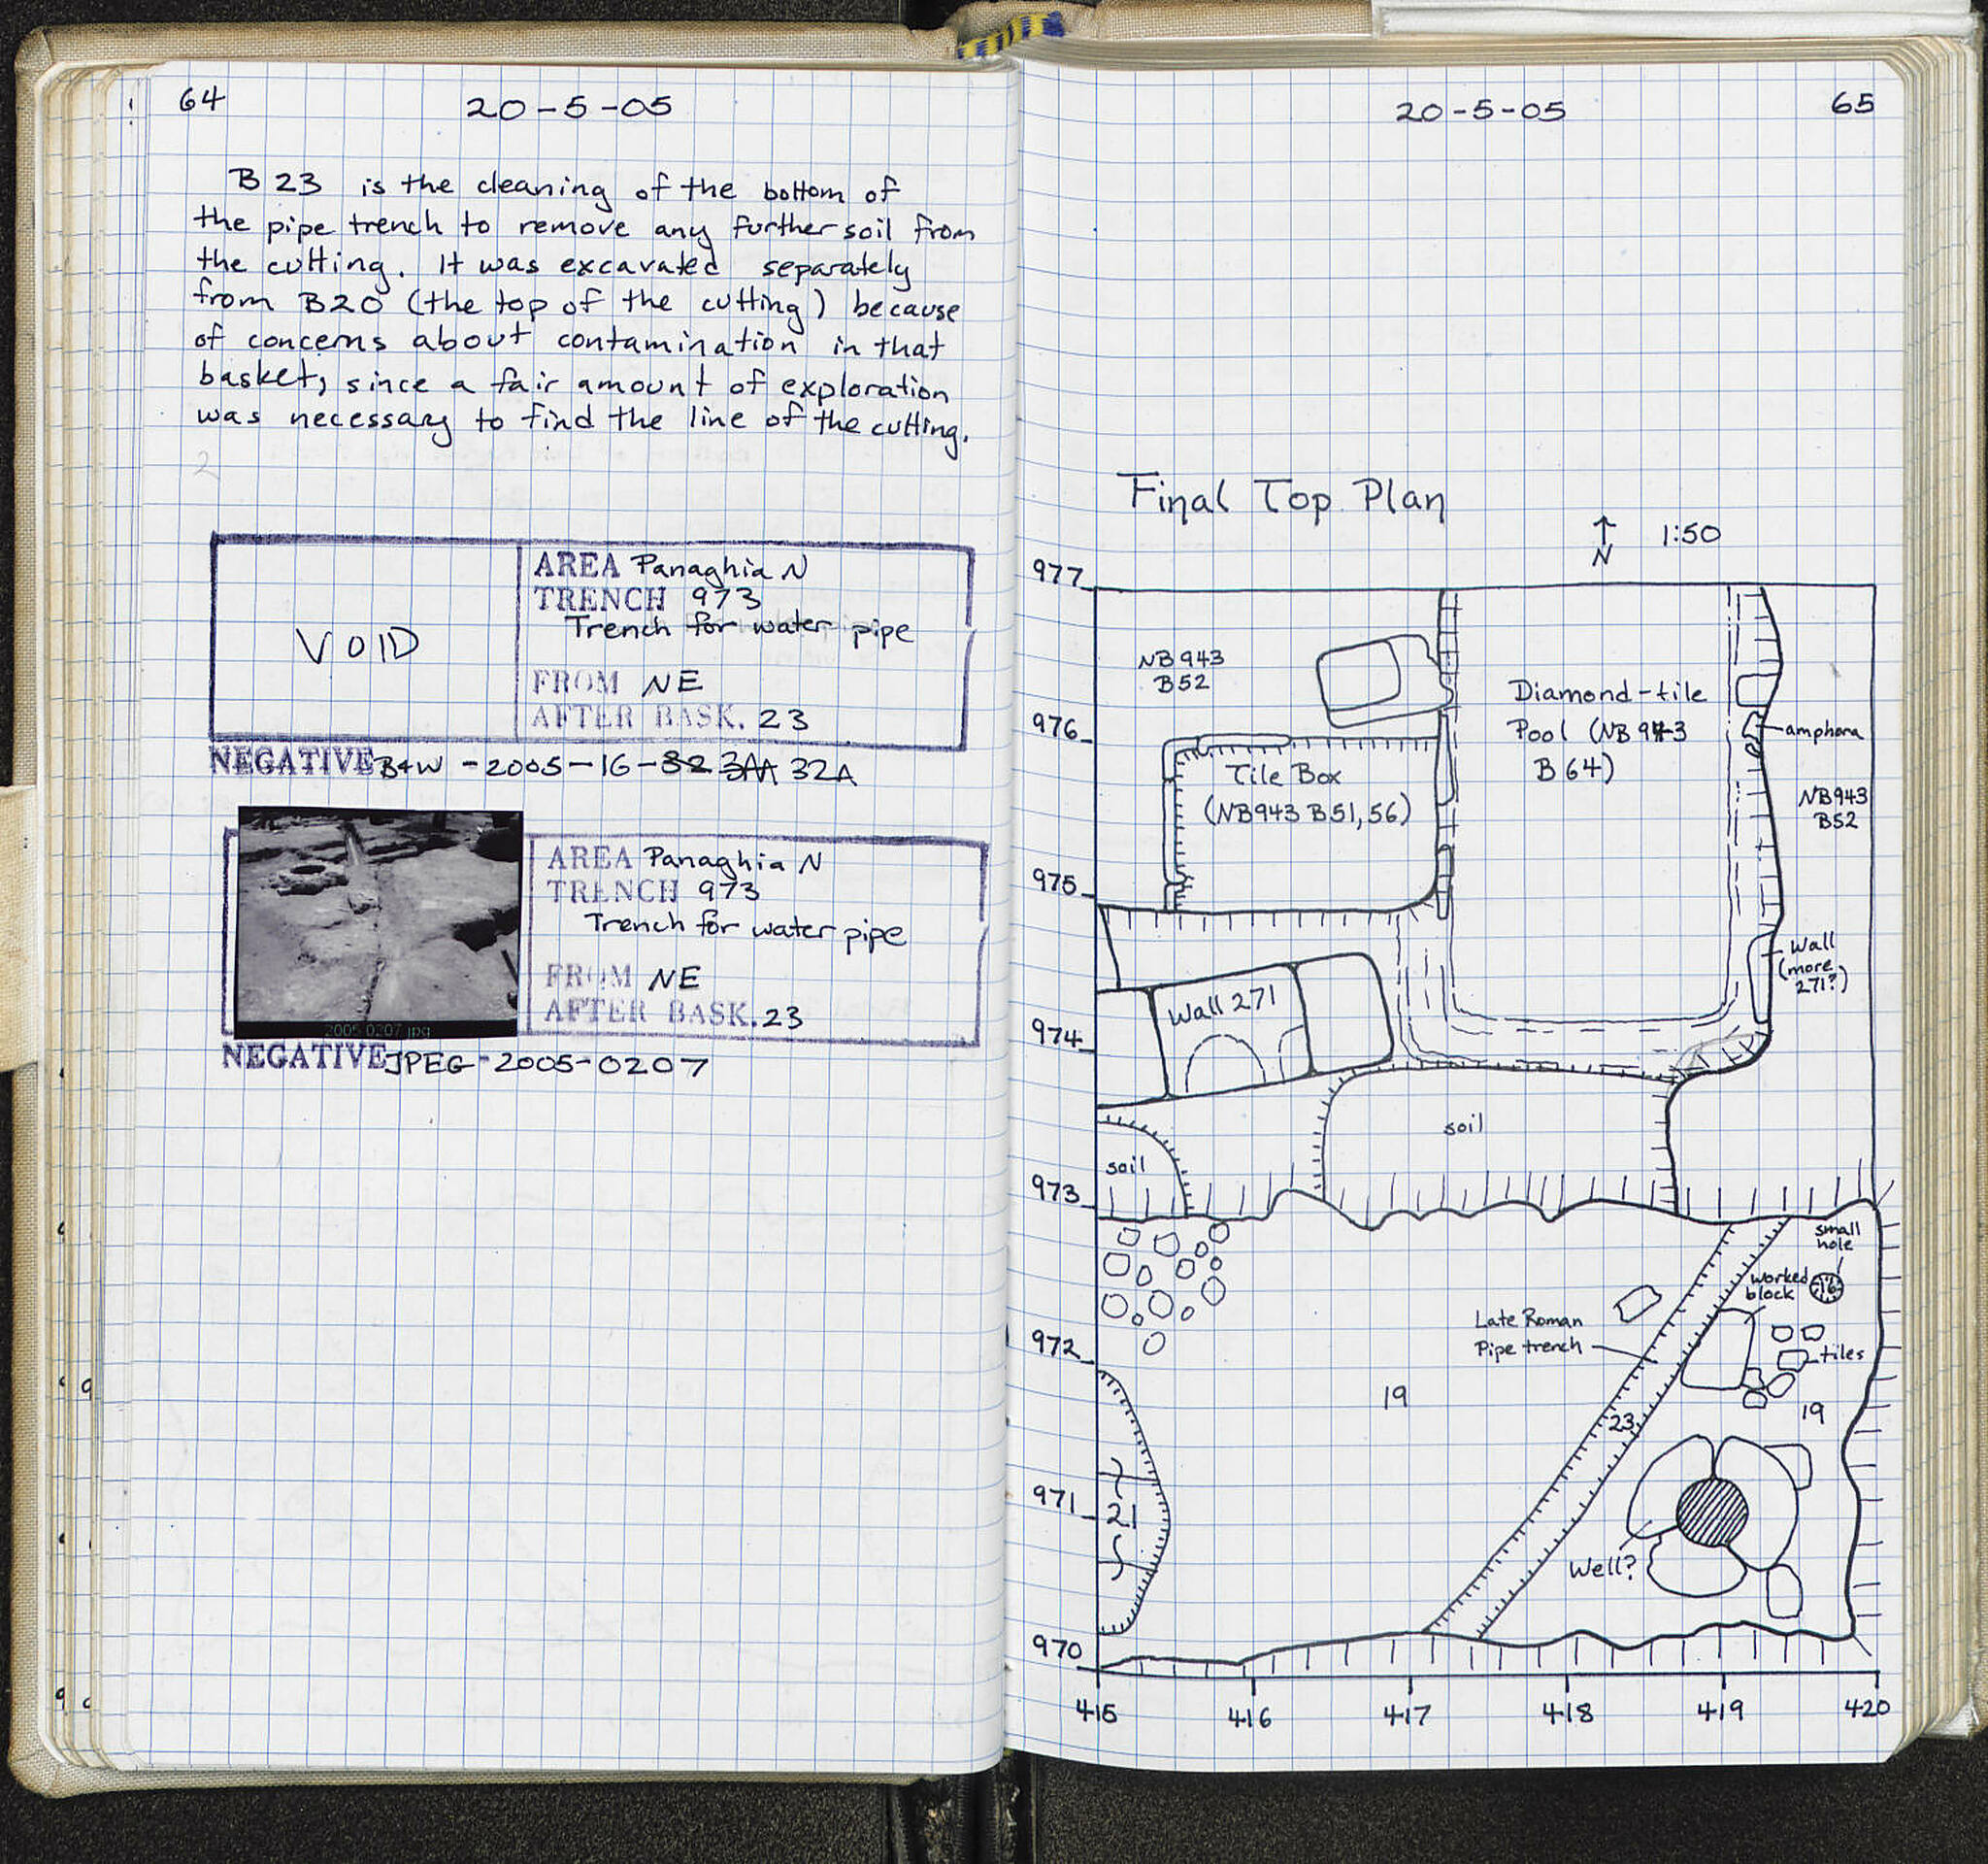 64
20-5-05
B 23 is the cleaning of the bottom of
the pipe trench to remove any further soil from
the cutting. It was excavated separately
from B20 (the top of the cutting) because
of concerns about contamination in that
basket, since a fair amount of exploration
was necessary to find the line of the cutting.
2
VOID
AREA Panaghia N
TRENCH 973
Trench for water pipe
FROM NE
AFTER BASK. 23
NEGATIVE B+W -2005-16-32 3AA 32A
AREA Panaghia N
TRENCH 973
Trench for water pipe
FROM NE
AFTER BASK. 23
2005 0207.jpg
NEGATIVE JPEG-2005-0207
20-5-05
65
Final Top Plan
N
1:50
977
976
975
974
973
972
971
970
NB943
B52
Diamond-tile
Pool (NB 943
B 64)
amphora
Tile Box
(NB943 B51, 56)
NB943
B52
Wall
(more
271?)
Wall 271
soil
soil
small
hole
worked
block
16
Late Roman
Pipe trench
tiles
19
19
23
21
Well?
415
416
417
418
419
420